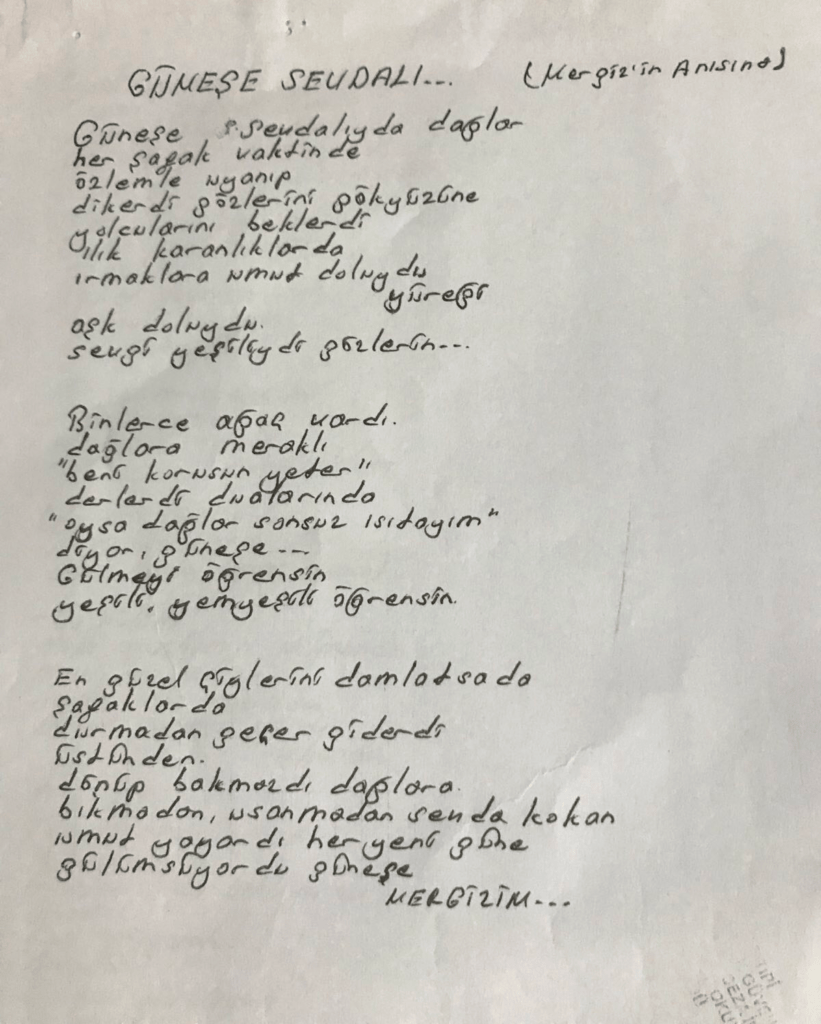 GÜNEŞE SEVDALI... (Mergiz'in Anısına)
Güneşe sevdalıyda dağlar
her şafak vaktinde
özlemle uyanıp
dikerdi gözlerini gökyüzüne
yolcularını beklerdi
ılık karanlıklarda
ırmaklara umut doluydu
yüreği
aşk doluydu.
sevgi yeşiliydi gözlerin...
Binlerce ağaç vardı.
dağlara meraklı
"beni korusun yeter"
derlerdi dualarında
"oysa dağlar sonsuz ısıtayım"
diyor, güneşe...
Gülmeyi öğrensin
yeşili, yemyeşili öğrensin.
En güzel çiğlerini damlatsada
şafaklarda
durmadan geçer giderdi
üstünden.
dönüp bakmazdı dağlara.
bıkmadan, usanmadan sevda kokan
umut yayardı her yeni güne
gülümsüyordu güneşe
MERGİZİM...
CEZA
OKU